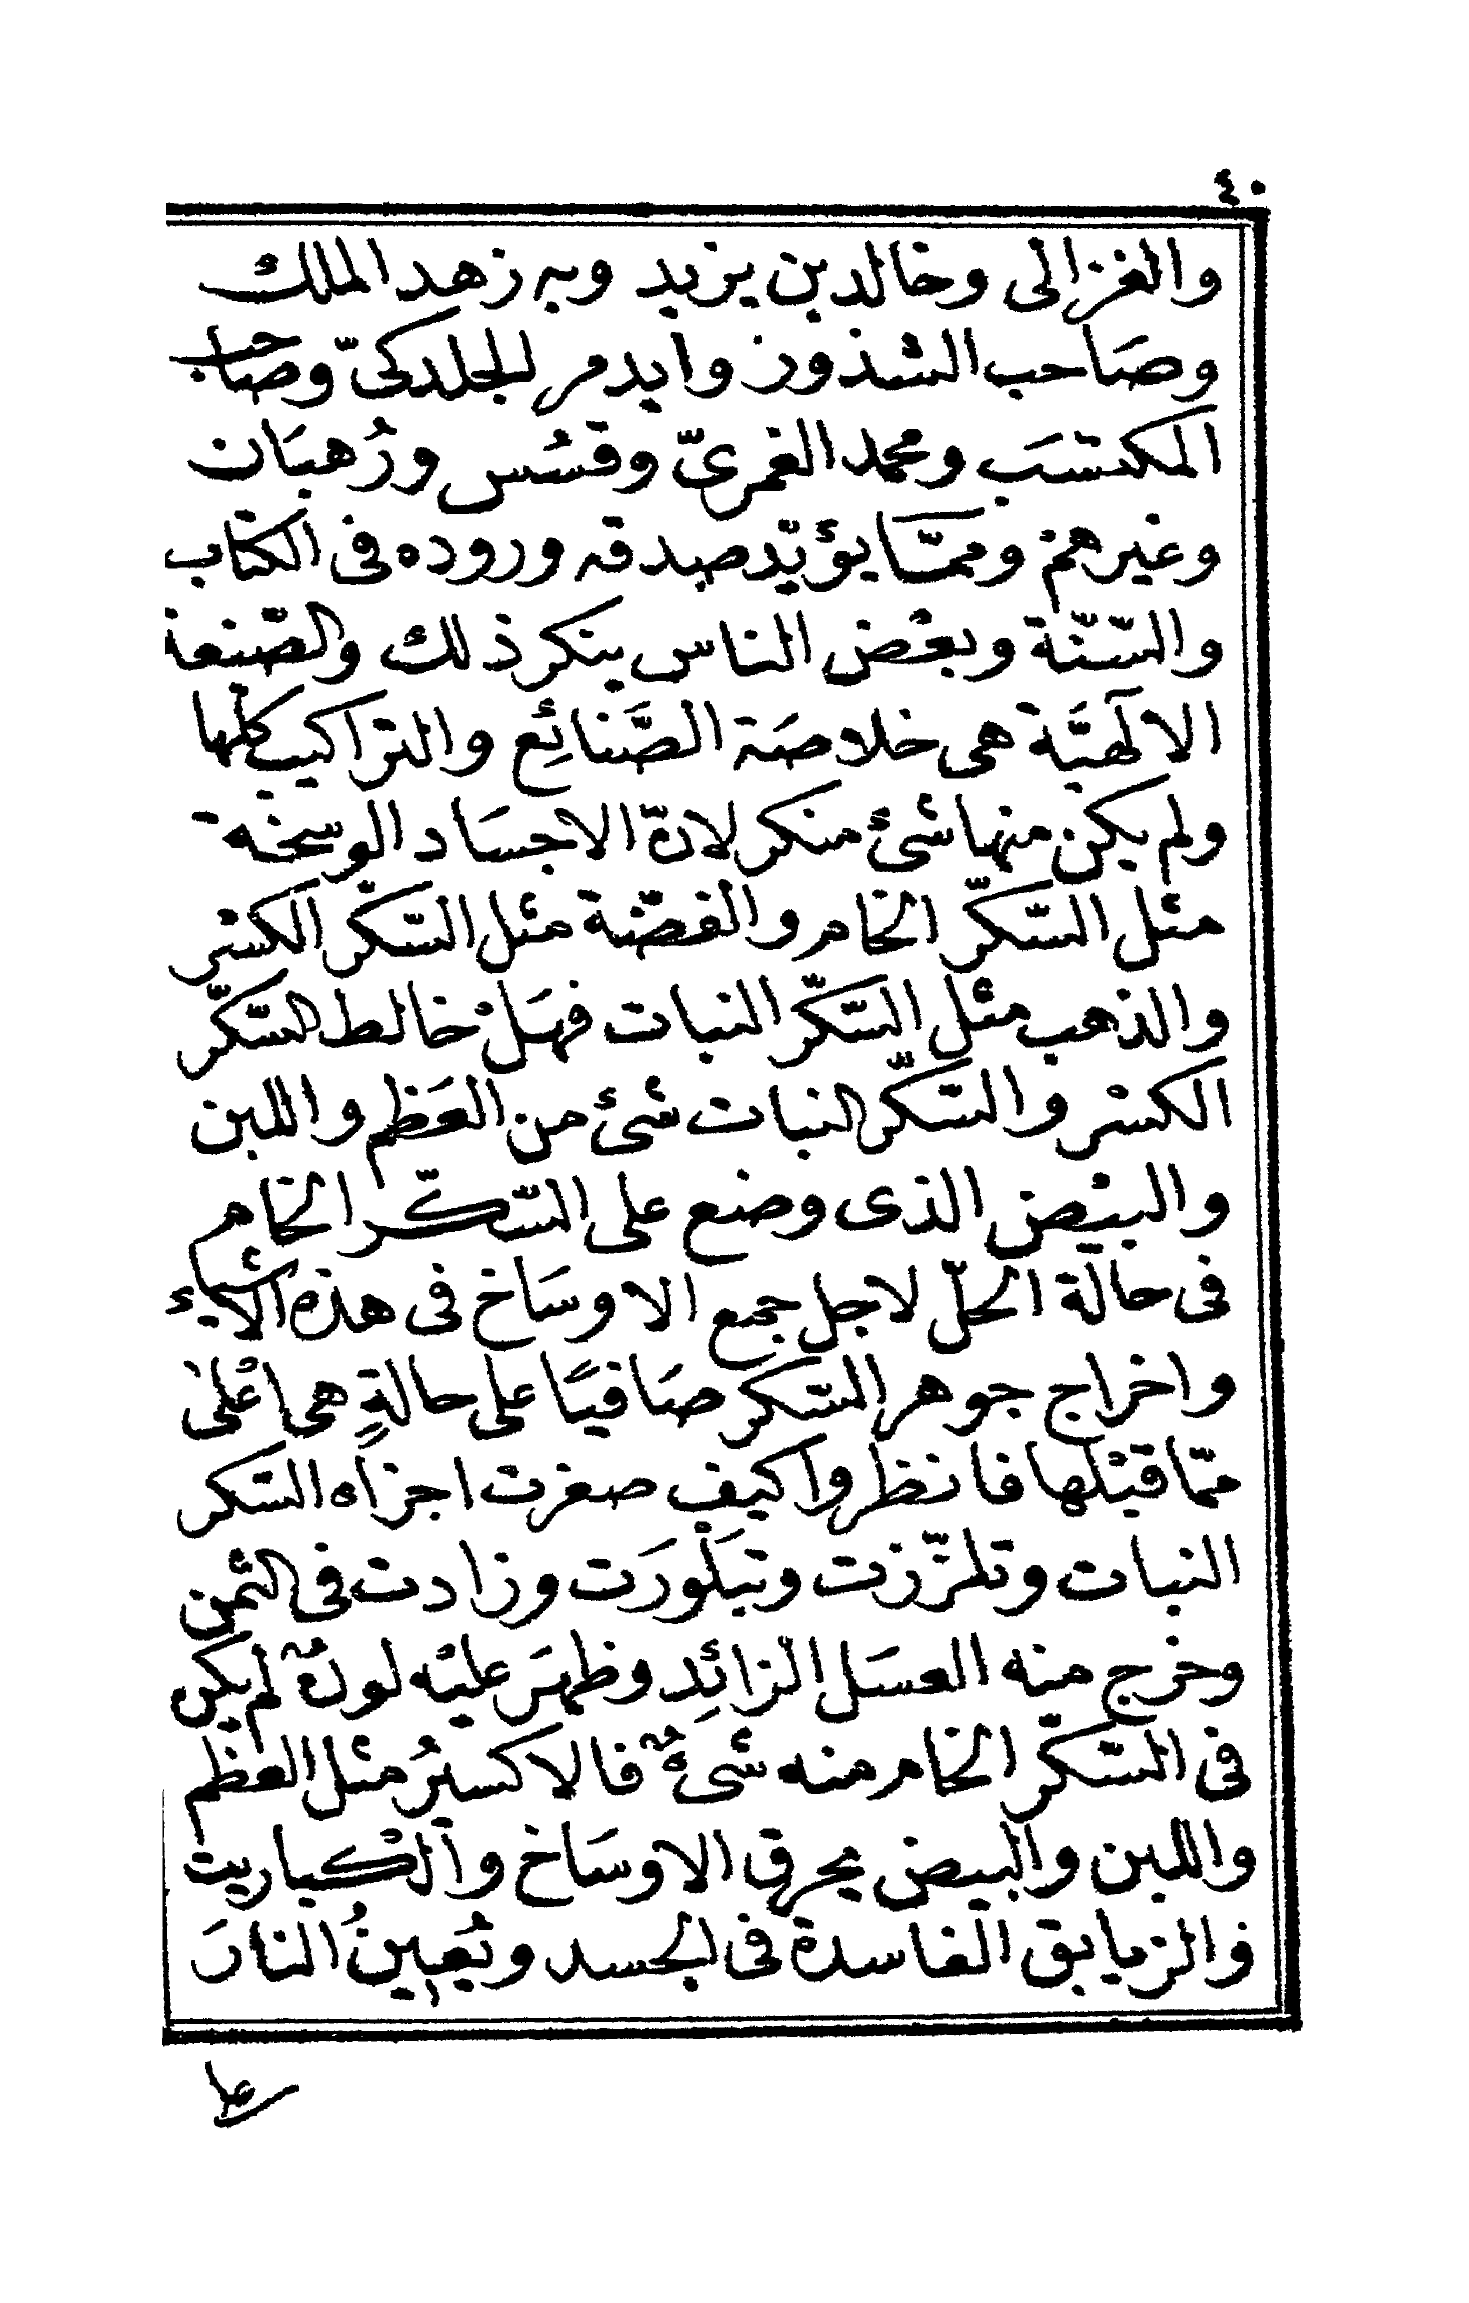 ٤٠
والغزالى وخالد بن يزيد وبه زهد الملك
وصاحب الشذور وايدمر الجلدكىّ وصاحب
المكتسَب ومحمد الغمرىّ وقسُس ورُهبَان
وغيرهم وممَّا يؤيّد صدقه وروده فى الكتاب
والسّنّة وبعْض الناس ينكر ذلك والصّنعة
الالهيَّة هى خلاصَة الصَّنائِع والتراكيب كلها
ولم يكن منها شئ منكر لانّ الاجسَاد الوسخة
مثل السّكّر الخام والفضّة مثل السّكّر الكسْر
والذهب مثل السّكّر النبات فهَلْ خالط السّكّر
الكسْر والسّكّر النبات شئ من العَظم واللبن
والبيْض الذى وضع على السّكّر الخام
فى حالة الحَلّ لاجل جمع الاوسَاخ فى هذه الاشياء
واخراج جوهر السّكر صَافيًا على حالةٍ هى اعْلى
ممّا قبْلها فانظروا كيف صغرت اجزاه السّكر
النبات وتلزّزت وتبَلورَت وزادت فى الثمن
وخرج منه العسَل الزائِد وظهَر عليْه لونٌ لم يكن
فى السّكّر الخام منه شىءٌ فالاكسيرُ مثل العَظم
واللبن والبيض يحرق الاوسَاخ والْكباريت
والزيابق الفاسدة فى الجسد وتُعِينُ النارَ
على